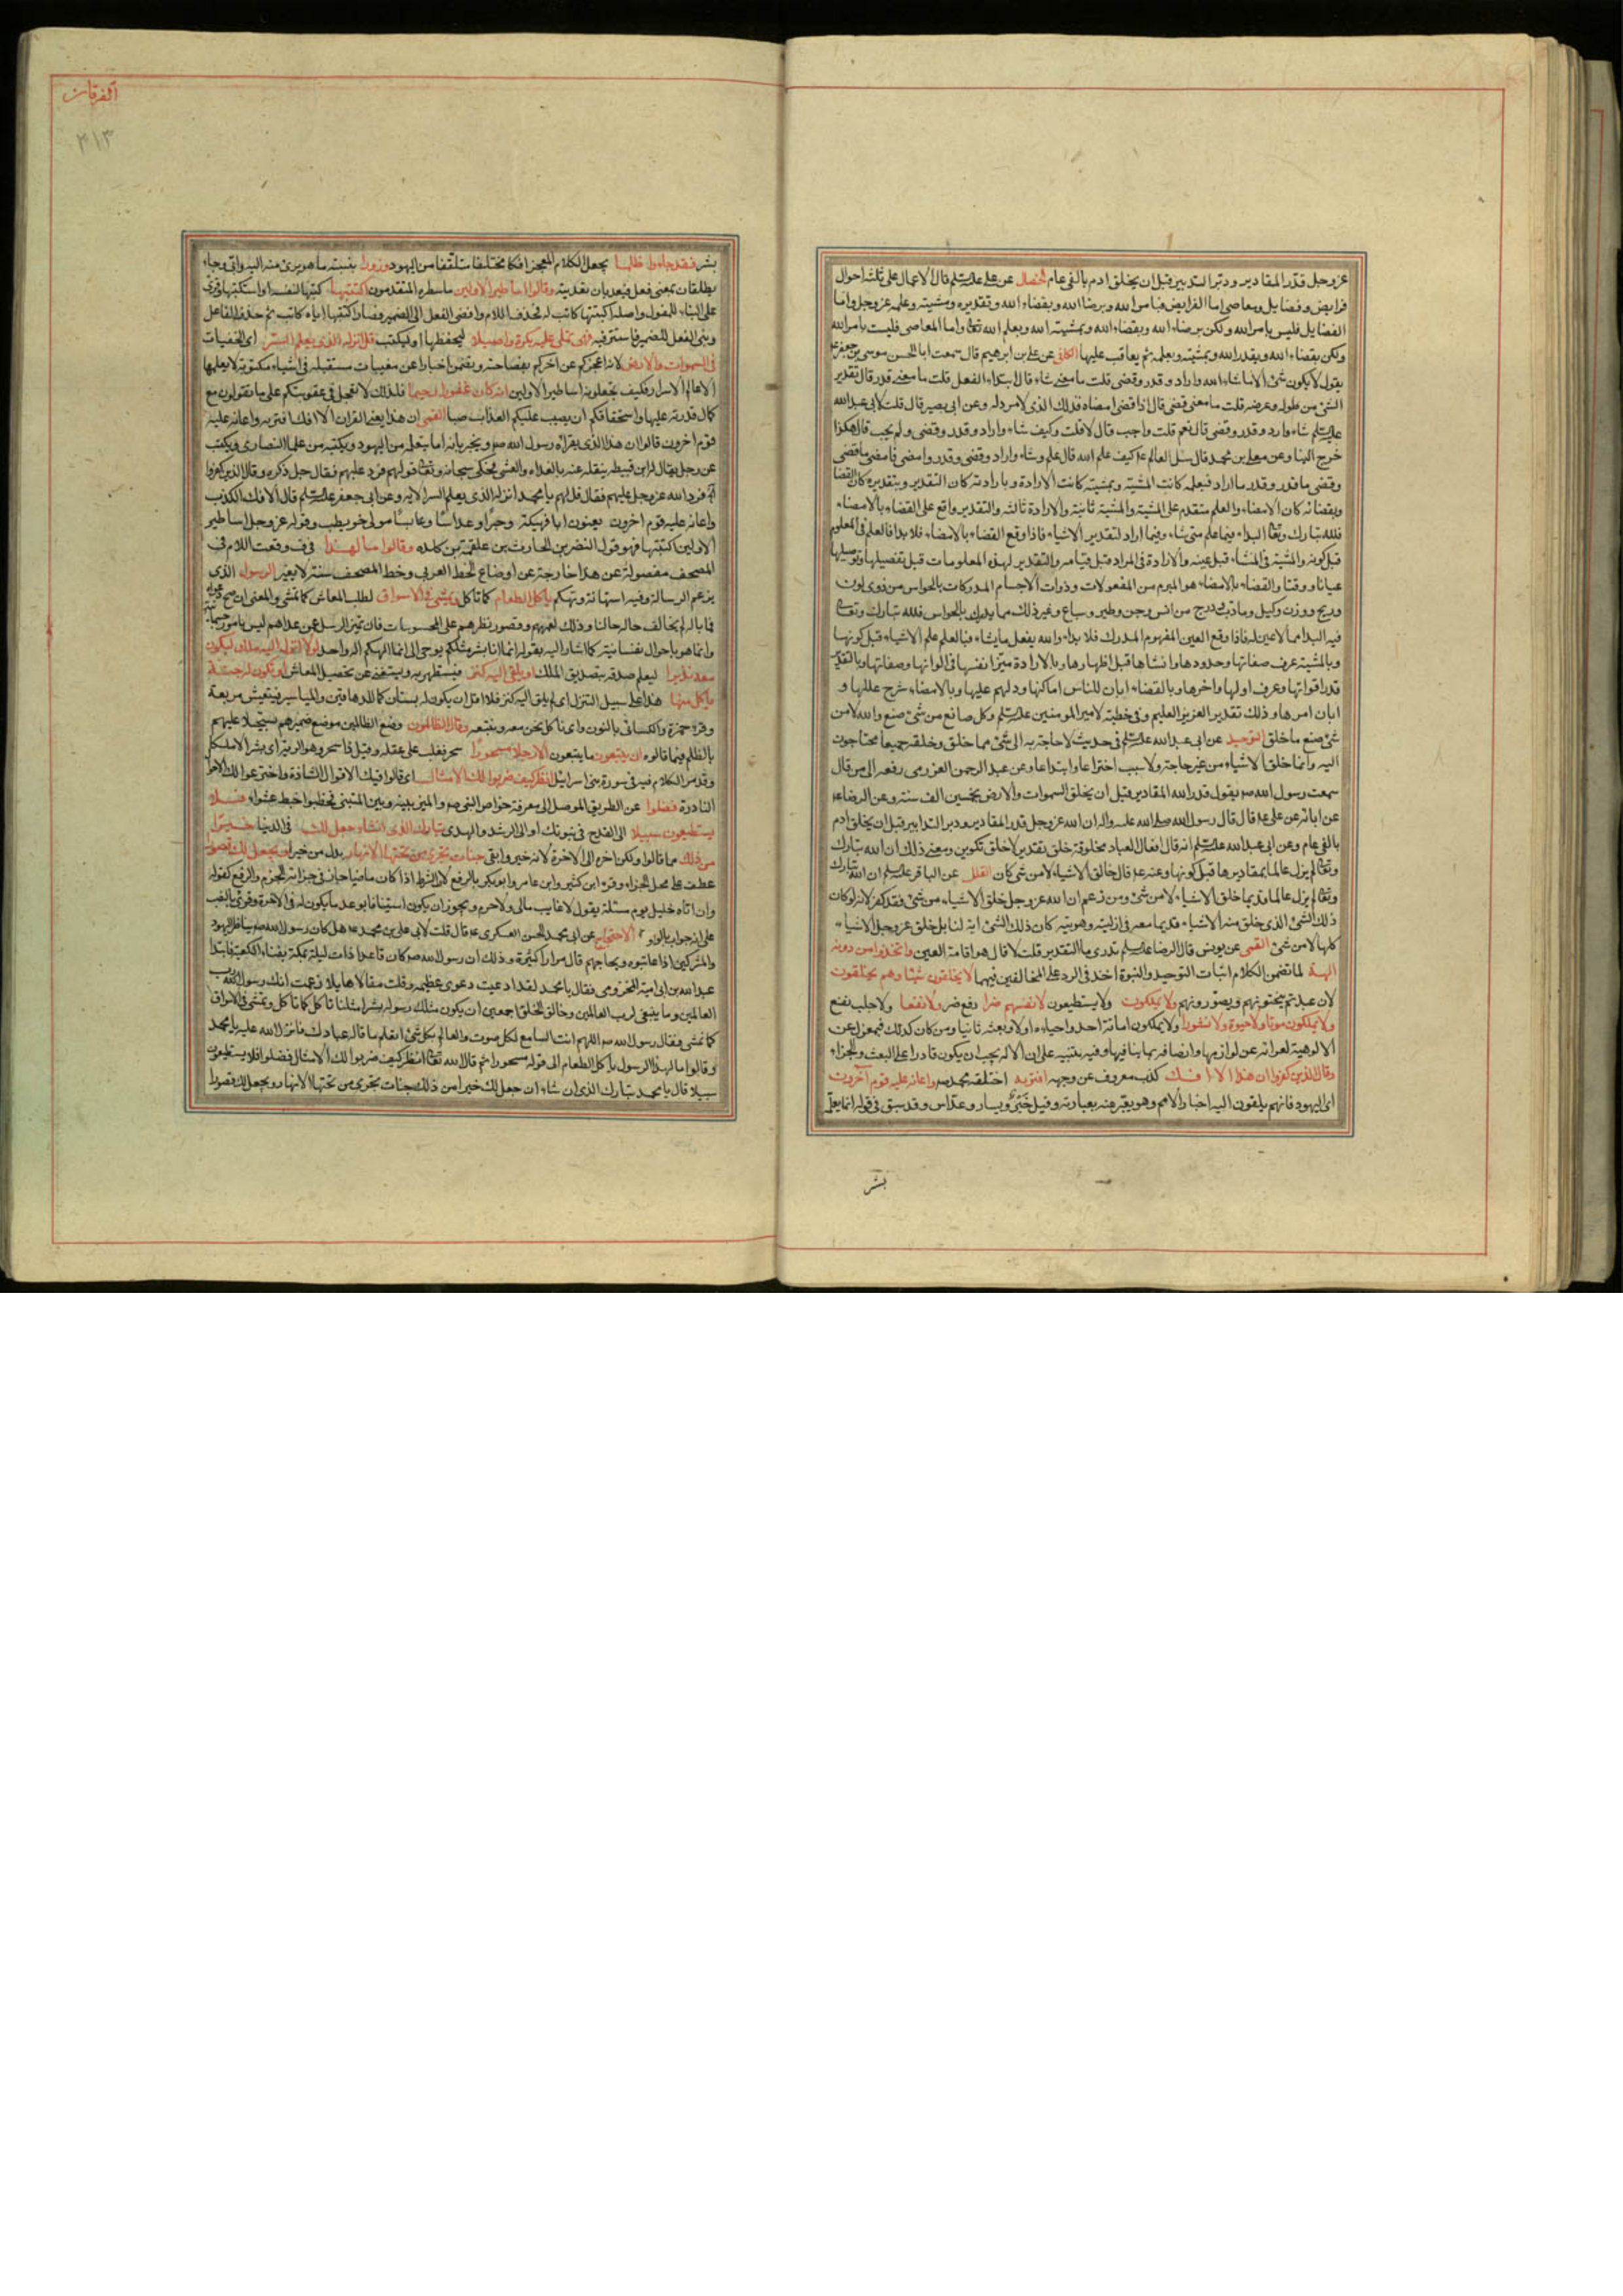 عز وجل قدر المقادير ودبر التدبير قبل ان يخلق ادم بالفى عام الخصال عن على عليه السلام قال الاعمال على ثلثة احوال
فرايض وفضايل ومعاصى اما الفرايض فبامر الله وبرضا الله وبقضاء الله وتقديره ومشيته وعلمه عز وجل واما
الفضايل فليس بامر الله ولكن برضاء الله وبقضاء الله وبمشية الله وبعلم الله تعالى واما المعاصى فليست بامر الله
ولكن بقضاء الله وبقدر الله وبمشيته وبعلمه ثم يعاقب عليها الكافى عن على بن ابرهيم قال سمعت ابا الحسن موسى بن جعفر ع
يقول لا يكون شئ الا ما شاء الله واراد وقدر وقضى قلت ما معنى شاء قال ابتداء الفعل قلت ما معنى قدر قال تقدير
الشئ من طوله وعرضه قلت ما معنى قضى قال اذا قضى امضاه فذلك الذى لا مرد له وعن ابى بصير قال قلت لابى عبد الله
عليه السلام شاء واراد وقدر وقضى قال نعم قلت واحب قال لا قلت وكيف شاء واراد وقدر وقضى ولم يحب قال هكذا
خرج الينا وعن معلى بن محمد قال سئل العالم ع كيف علم الله قال علم وشاء واراد وقدر وقضى وامضى فامضى ما قضى
وقضى ما قدر وقدر ما اراد فبعلمه كانت المشية وبمشيته كانت الارادة وبارادته كان التقدير وبتقديره كان القضا
وبقضائه كان الامضاء والعلم متقدم على المشية والمشية ثانية والارادة ثالثة والتقدير واقع على القضاء بالامضاء
فلله تبارك وتعالى البداء فيما علم متى شاء وفيما اراد لتقدير الاشياء فاذا وقع القضاء بالامضاء فلا بدا فالعلم فى المعلوم
قبل كونه والمشية فى المشاء قبل عينه والارادة فى المراد قبل قيامه والتقدير لهذه المعلومات قبل تفصيلها وتوصيلها
عيانا ووقتا والقضاء بالامضاء هو المبرم من المفعولات وذوات الاجسام المدركات بالحواس من ذوى لون
وريح ووزن وكيل وما دب ودرج من انس وجن وطير وسباع وغير ذلك مما يدرك بالحواس فلله تبارك وتعالى
فيه البدا مما لا عين له فاذا وقع العين المفهوم المدرك فلا بداء والله يفعل ما يشاء فبالعلم علم الاشياء قبل كونها
وبالمشية عرف صفاتها وحدودها وانشاها قبل اظهارها وبالارادة ميز انفسها فى الوانها وصفاتها وبالتقدير
قدر اقواتها وعرف اولها واخرها وبالقضاء ابان للناس اماكنها ودلهم عليها وبالامضاء شرح عللها و
ابان امرها وذلك تقدير العزيز العليم وفى خطبة لامير المومنين عليه السلام وكل صانع من شئ صنع والله لا من
شئ صنع ما خلق التوحيد عن ابى عبد الله عليه السلام فى حديث لا حاجة به الى شئ مما خلق وخلقه جميعا محتاجون
اليه وانما خلق الاشياء من غير حاجة ولا سبب اختراعا وابتداعا وعن عبد الرحمن العزرمى رفعه الى من قال
سمعت رسول الله ص يقول قدر الله المقادير قبل ان يخلق السموات والارض بخمسين الف سنة وعن الرضا ع
عن ابائه عن على ع قال قال رسول الله صلى الله عليه واله ان الله عز وجل قدر المقادير ودبر التدابير قبل ان يخلق ادم
بالفى عام وعن ابى عبد الله عليه السلام انه قال افعال العباد مخلوقة خلق تقدير لا خلق تكوين ومعنى ذلك ان الله تبارك
وتعالى لم يزل عالما بمقاديرها قبل كونها وعنه ع قال خالق الاشياء لا من شئ كان العلل عن الباقر عليه السلام ان الله تبارك
وتعالى لم يزل عالما قديما خلق الاشياء لا من شئ ومن زعم ان الله عز وجل خلق الاشياء من شئ فقد كفر لانه لو كان
ذلك الشئ الذى خلق منه الاشياء قديما معه فى ازليته وهويته كان ذلك الشئ بل خلق عز وجل الاشياء
كلها لا من شئ القمى عن يونس قال الرضا عليه السلام تدرى ما التقدير قلت لا قال هو اقامة العين واتخذوا من دونه
الهة لما تضمن الكلام اثبات التوحيد والنبوة اخذ فى الرد على المخالفين فيهما لا يخلقون شيئا وهم يخلقون
لان عبدتهم ينحتونهم ويصورونهم ولا يملكون ولا يستطيعون لانفسهم ضرا دفع ضر ولا نفعا ولا جلب نفع
ولا يملكون موتا ولا حيوة ولا نشورا ولا يملكون اماتة احد واحياءه اولا وبعثه ثانيا ومن كان كذلك فبمعزل عن
الالوهية لعرائه عن لوازمها واتصافه بما ينافيها وفيه تنبيه على ان الاله يجب ان يكون قادرا على البعث والجزاء
وقال الذين كفروا ان هذا الا افك كذب معروف عن وجهه افتريه اختلقه محمد ص واعانه عليه قوم آخرون
اى اليهود فانهم يلقون اليه اخبار الامم وهو يعبر عنه بعبارته وقيل جبر ويسار وعداس وقد سبق فى قوله انما يعلمه
بشر
الفرقان
٤١٣
بشر فقد جاءوا ظلما بجعل الكلام المعجز افكا مختلقا متلقفا من اليهود وزورا بنسبة ما هو برئ منه اليه واتى وجاء
يطلقان بمعنى فعل فيعديان تعديته وقالوا اساطير الاولين ما سطره المتقدمون اكتتبها كتبها لنفسه او استكتبها وقرئ
على البناء للمفعول واصله اكتتبها كاتب له فحذف اللام وافضى الفعل الى الضمير فصار اكتتبها اياه كاتب ثم حذف الفاعل
وبنى الفعل للضمير فاستتر فيه فهى تملى عليه بكرة واصيلا ليحفظها او ليكتب قل انزله الذى يعلم السر اى الخفيات
فى السموات والارض لانه اعجزكم عن آخركم بفصاحته وتضمن اخبارا عن مغيبات مستقبلة واشياء مكنونة لا يعلمها
الا عالم الاسرار فكيف تجعلونه اساطير الاولين انه كان غفورا رحيما فلذلك لا تعجل فى عقوبتكم على ما تقولون مع
كمال قدرته عليها واستحقاقكم ان يصب عليكم العذاب صبا القمى ان هذا يعنى القران الا افك افتريه واعانه عليه
قوم اخرون قالوا ان هذا الذى يقرأه رسول الله ص ويخبر به انما يتعلمه من اليهود ويكتبه من علماء النصارى ويكتب
عن رجل يقال له ابن قبيطة ينقله عنه بالغداة والعشى فحكى سبحانه وتعالى قولهم فرد عليهم فقال جل ذكره وقال الذين كفروا
فرد الله عز وجل عليهم فقال قل لهم يا محمد انزله الذى يعلم السر الاية وعن ابى جعفر عليه السلام قال الافك الكذب
واعانه عليه قوم آخرون يعنون ابا فهيكة وحبرا وعداسا وعابسا مولى حويطب وقوله عز وجل اساطير
الاولين اكتتبها فهو قول النضر بن الحارث بن علقمة بن كلدة وقالوا ما لهذا وقعت اللام فى
المصحف مفصولة عن هذا خارجة عن اوضاع الخط العربى وخط المصحف سنة لا يغير الرسول الذى
يزعم الرسالة وفيه استهانة وتهكم ياكل الطعام كما ناكل ويمشى فى الاسواق لطلب المعاش كما نمشى والمعنى ان صح دعواه
فما باله لم يخالف حاله حالنا وذلك لعمههم وقصور نظرهم على المحسوسات فان تميز الرسل عمن عداهم ليس بامور جسمانية
وانما هو باحوال نفسانية كما اشار اليه بقوله انما انا بشر مثلكم يوحى الى انما الهكم اله واحد لولا انزل اليه ملك فيكون
معه نذيرا ليعلم صدقه بتصديق الملك او يلقى اليه كنز فيستظهر به ويستغنى عن تحصيل المعاش او تكون له جنة
ياكل منها هذا على سبيل التنزل اى ان لم يلق اليه كنز فلا اقل ان يكون له بستان كما للدهاقين والمياسير فيتعيش بريعه
وقرء حمزة والكسائى بالنون وقال الظالمون وضع الظالمين موضع ضميرهم تسجيلا عليهم
بالظلم فيما قالوه ان تتبعون ما تتبعون الا رجلا مسحورا سحر فغلب على عقله وقيل ذا سحر وهو الرئة اى بشرا لا ملكا
وقد مر الكلام فيه فى سورة بنى اسرائيل انظر كيف ضربوا لك الامثال اى قالوا فيك الاقوال الشاذة واخترعوا لك الاحوال
النادرة فضلوا عن الطريق الموصل الى معرفة خواص النبى ص والميز بينه وبين المتنبى فخبطوا خبط عشواء فلا
يستطيعون سبيلا الى القدح فى نبوتك او الى الرشد والهدى تبارك الذى ان شاء جعل لك فى الدنيا خيرا
من ذلك مما قالوا ولكن اخره الى الاخرة لانه خير وابقى جنات تجرى من تحتها الانهار بدل من خيرا ويجعل لك قصورا
عطف على محل الجزاء وقرء ابن كثير وابن عامر وابو بكر بالرفع لان الشرط اذا كان ماضيا جاز فى جزائه الجزم والرفع كقوله
وان اتاه خليل يوم مسئلة يقول لا غايب مالى ولا حرم ويجوز ان يكون استينافا بوعد ما يكون له فى الاخرة وقرئ بالنصب
على انه جواب بالواو الاحتجاج عن ابى محمد الحسن العسكرى ع قال قلت لابى على بن محمد ع هل كان رسول الله ص يناظر اليهود
والمشركين اذا عاتبوه ويحاجهم قال مرارا كثيرة وذلك ان رسول الله ص كان قاعدا ذات ليلة بمكة بفناء الكعبة فابتدا
عبد الله بن ابى امية المخزومى فقال يا محمد لقد ادعيت دعوى عظيمة وقلت مقالا هايلا زعمت انك رسول رب
العالمين وما ينبغى لرب العالمين وخالق الخلق اجمعين ان يكون مثلك رسوله بشرا مثلنا تاكل كما ناكل وتمشى فى الاسواق
كما نمشى فقال رسول الله ص اللهم انت السامع لكل صوت والعالم بكل شئ تعلم ما قاله عبادك فانزل الله عليه يا محمد
وقالوا ما لهذا الرسول ياكل الطعام الى قوله مسحورا ثم قال الله تعالى انظر كيف ضربوا لك الامثال فضلوا فلا يستطيعون
سبيلا قال يا محمد تبارك الذى ان شاء جعل لك خيرا من ذلك جنات تجرى من تحتها الانهار ويجعل لك قصورا